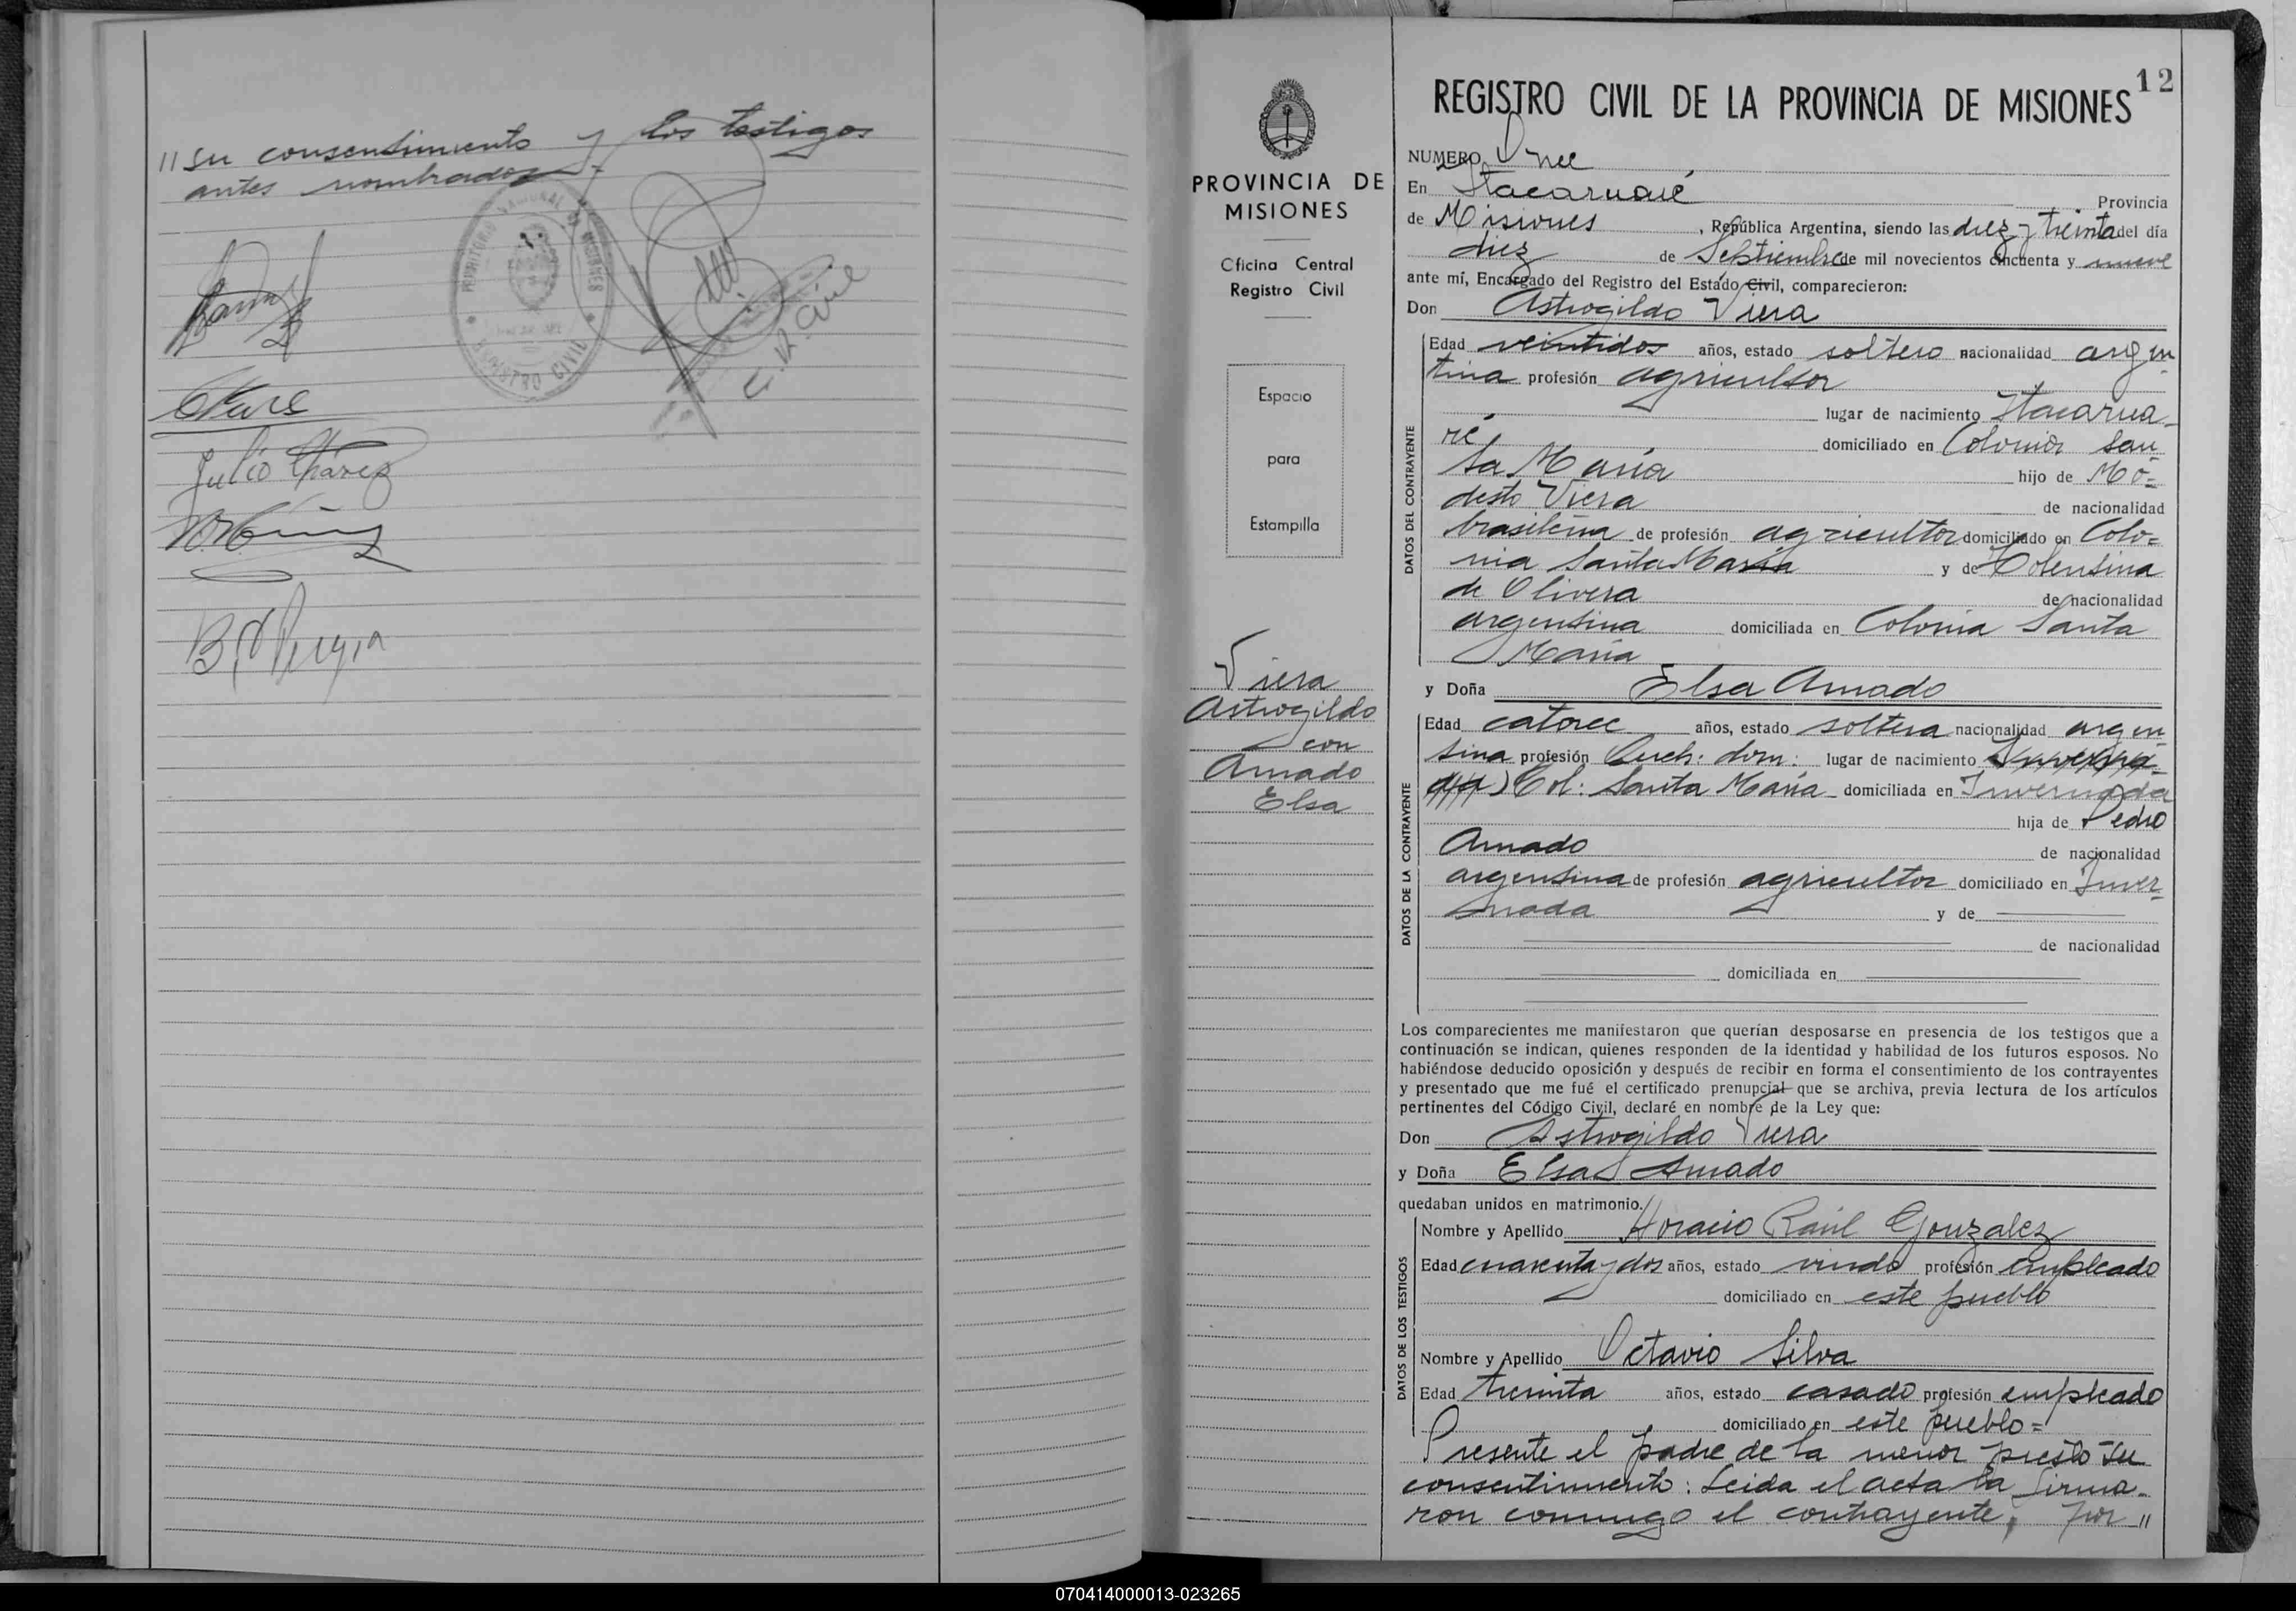 "su consentimiento y los testigos
antes nombrados.-
REGISTRO CIVIL
E. R. Civil
Julio Chávez
12
REGISTRO CIVIL DE LA PROVINCIA DE MISIONES
PROVINCIA DE
MISIONES
Oficina Central
Registro Civil
Espacio
para
Estampilla
Viera
Astrogildo
con
Amado
Elsa
NUMERO Once
En Itacaruaré Provincia
de Misiones, República Argentina, siendo las diez y treinta del día
diez de Septiembre de mil novecientos cincuenta y nueve
ante mí, Encargado del Registro del Estado Civil, comparecieron:
Don Astrogildo Viera
DATOS DEL CONTRAYENTE
Edad veintidos años, estado soltero nacionalidad argen-
tina profesión agricultor
lugar de nacimiento Itacarua-
ré domiciliado en Colonia San-
ta María hijo de Mo=
desto Viera de nacionalidad
brasileña de profesión agricultor domiciliado en Colo=
nia Santa María y de Holentina
de Olivera de nacionalidad
argentina domiciliada en Colonia Santa
María
y Doña Elsa Amado
DATOS DE LA CONTRAYENTE
Edad catorce años, estado soltera nacionalidad argen-
tina profesión Queh: dom: lugar de nacimiento Inverna-
da) Col: Santa María domiciliada en Invernada
hija de Pedro
Amado de nacionalidad
argentina de profesión agricultor domiciliado en Inver-
nada y de
de nacionalidad
domiciliada en
Los comparecientes me manifestaron que querían desposarse en presencia de los testigos que a
continuación se indican, quienes responden de la identidad y habilidad de los futuros esposos. No
habiéndose deducido oposición y después de recibir en forma el consentimiento de los contrayentes
y presentado que me fué el certificado prenupcial que se archiva, previa lectura de los artículos
pertinentes del Código Civil, declaré en nombre de la Ley que:
Don Astrogildo Viera
y Doña Elsa Amado
quedaban unidos en matrimonio.
DATOS DE LOS TESTIGOS
Nombre y Apellido Horacio Raúl Gonzalez
Edad cuarenta y dos años, estado viudo profesión empleado
domiciliado en este pueblo
Nombre y Apellido Octavio Silva
Edad treinta años, estado casado profesión empleado
domiciliado en este pueblo=
Presente el padre de la menor prestó su
consentimiento: Leida el acta la firma-
ron conmigo el contrayente, por "
070414000013-023265